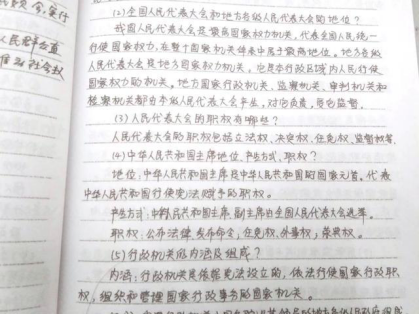 (2)全国人民代表大会和地方各级人民代表大会的地位?
我国人民代表大会是最高国家权力机关,代表全国人民统一
行使国家权力,在整个国家机关体系中居于最高地位,地方各级
人民代表大会是地方国家权力机关,它是本行政区域内人民行使
国家权力的机关。地方国家行政机关、监察机关、审判机关和
检察机关都由本级人民代表大会产生,对它负责,受它监督.
(3)人民代表大会的职权有哪些?
人民代表大会的职权包括立法权、决定权、任免权、监督权等
(4)中华人民共和国主席地位、产生方式、职权?
地位:中华人民共和国主席是中华人民共和国的国家元首,代表
中华人民共和国行使宪法赋予的职权。
产生方式:中华人民共和国主席、副主席由全国人民代表大会选举。
职权:公布法律、发布命令,任免权、外事权,荣典权。
(5)行政机关的内涵及组成?
内涵:行政机关是依据宪法设立的,依法行使国家行政职
权,组织和管理国家行政事务的国家机关。